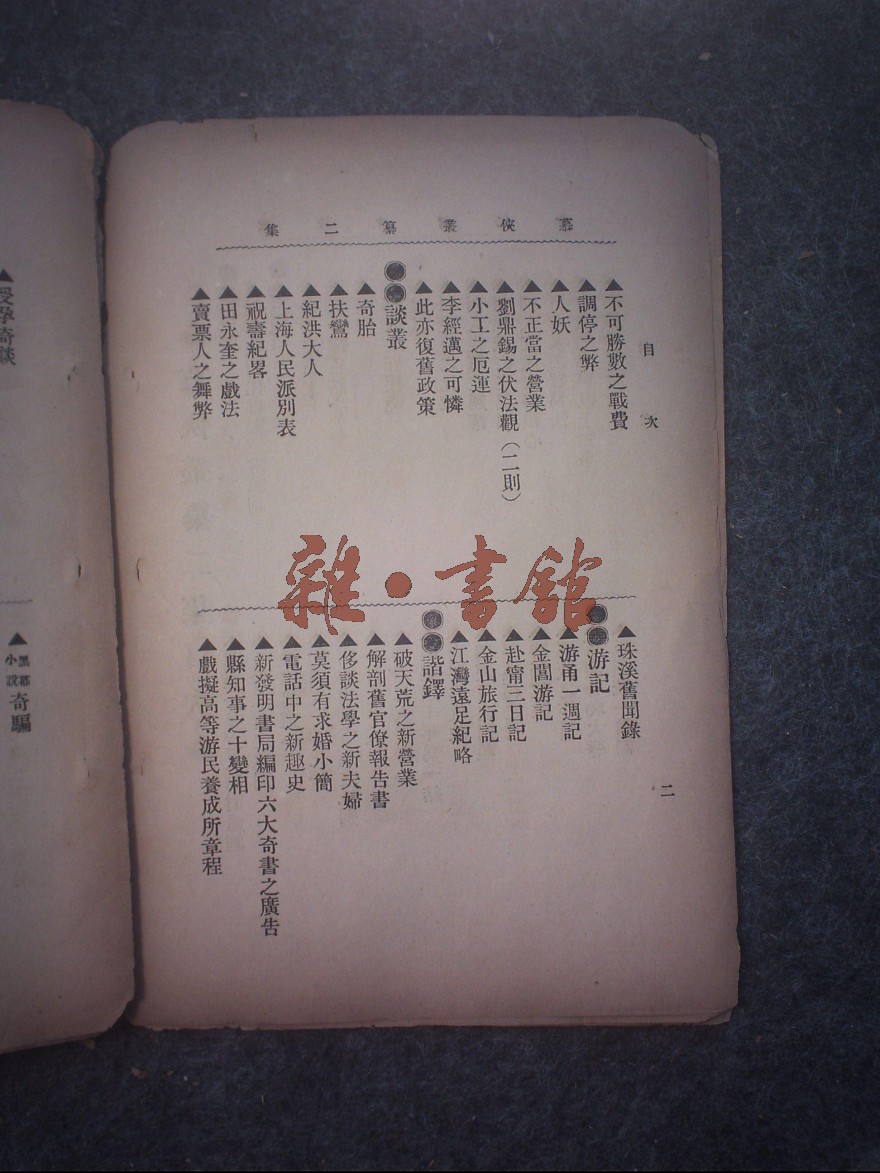 慕俠叢纂二集
目次
▲不可勝數之戰費
▲調停之弊
▲人妖
▲不正當之營業
▲劉鼎錫之伏法觀（二則）
▲小工之厄運
▲李經邁之可憐
▲此亦復舊政策
●●談叢
▲奇胎
▲扶鸞
▲紀洪大人
▲上海人民派別表
▲祝壽紀畧
▲田永奎之戲法
▲賣票人之舞弊
▲珠溪舊聞錄
●●游記
▲游甬一週記
▲金閶游記
▲赴甯三日記
▲金山旅行記
▲江灣遠足紀略
●●諧鐸
▲破天荒之新營業
▲解剖舊官僚報告書
▲侈談法學之新夫婦
▲莫須有求婚小簡
▲電話中之新趣史
▲新發明書局編印六大奇書之廣告
▲縣知事之十變相
▲戲擬高等游民養成所章程
二
雜·書館
▲受孕奇談
▲黑幕小說奇騙